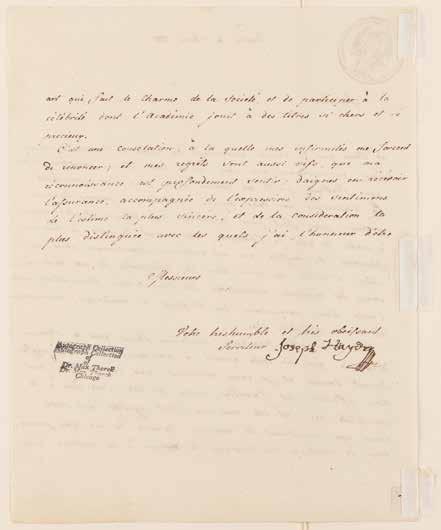 art qui fait le charme de la Société et de participer à la
célébrité dont l'Académie jouit à des titres si chers et si
precieux.
C'est une consolation, à la quelle mes infirmités me forcent
de renoncer; et mes regrets sont aussi vifs, que ma
reconnoissance est profondement sentie; daignez en recevoir
l'assurance, accompagnée de l'expression des sentimens
de l'estime la plus sincere, et de la consideration la
plus distinguée avec les quels j'ai l'honneur d'être
Messieurs
Votre tres humble et très obeissant
Serviteur Joseph Haydn
Autograph Collection
of
Dr. Max Thorek
Chicago